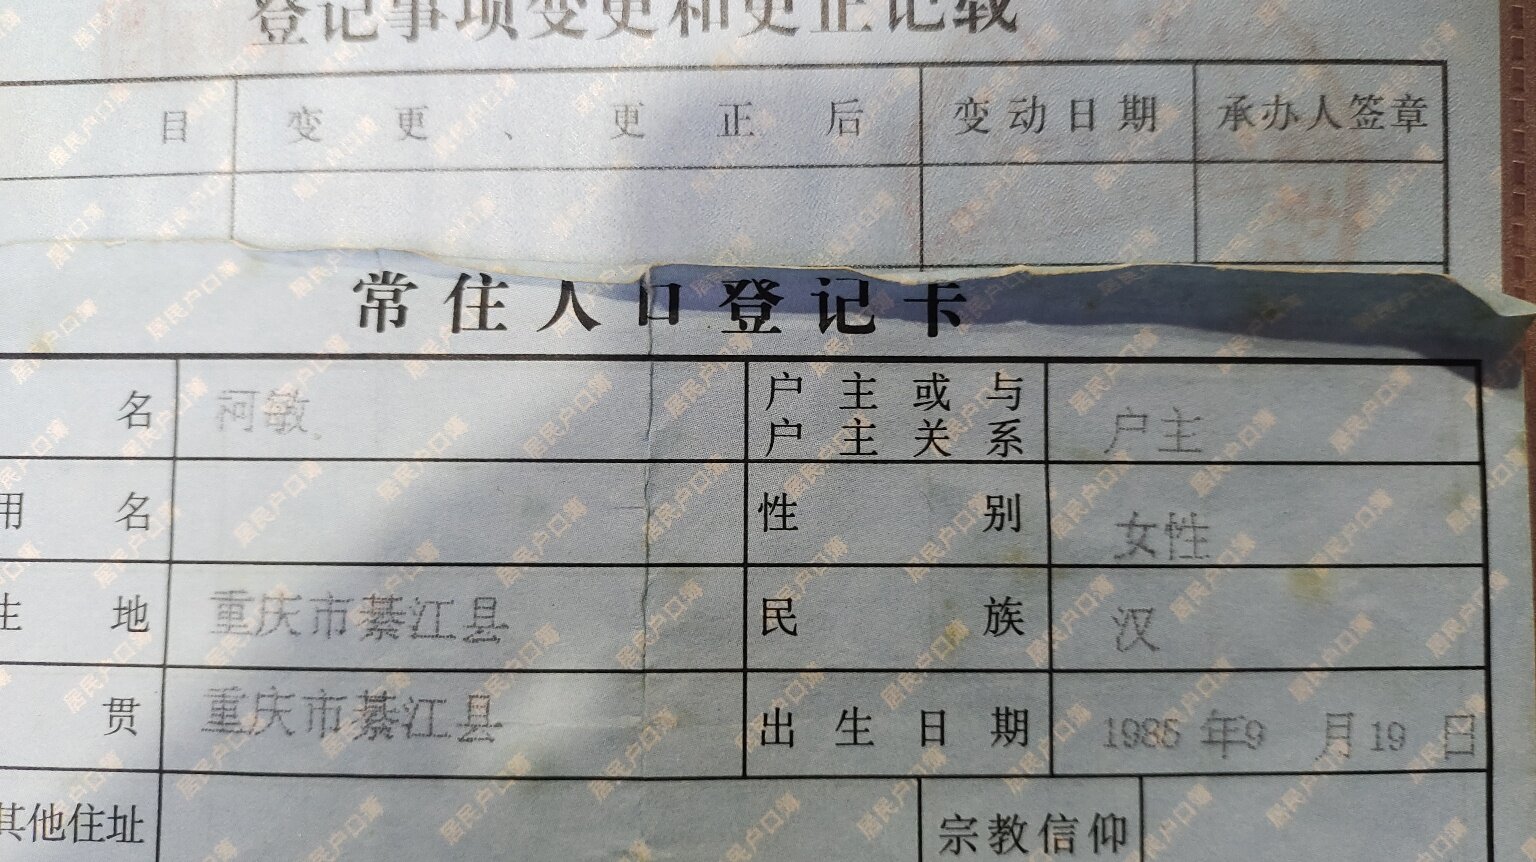 登记事项变更和更正记载
目 变更、更正后 变动日期 承办人签章
常住人口登记卡
名 柯敏 户主或与户主关系 户主
用名 性别 女性
生地 重庆市綦江县 民族 汉
贯 重庆市綦江县 出生日期 1985年9月19日
其他住址 宗教信仰
居民户口簿